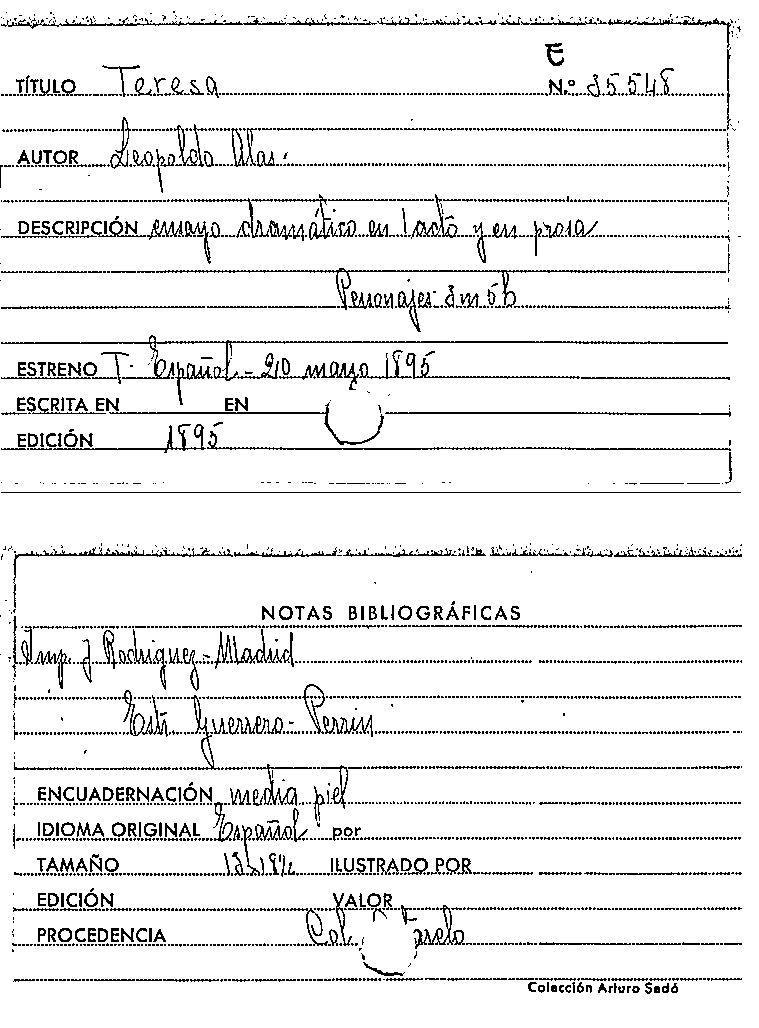 E
TÍTULO Teresa N.º 35548
AUTOR Leopoldo Alas.
DESCRIPCIÓN ensayo dramático en 1 acto y en prosa
Personajes 3m 5h
ESTRENO T. Español - 20 marzo 1895
ESCRITA EN EN
EDICIÓN 1895
NOTAS BIBLIOGRÁFICAS
Imp. J Rodriguez - Madrid
Estr. Guerrero - Perrin
ENCUADERNACIÓN media piel
IDIOMA ORIGINAL Español por
TAMAÑO ILUSTRADO POR
EDICIÓN VALOR
PROCEDENCIA Col.
Colección Arturo Sedó